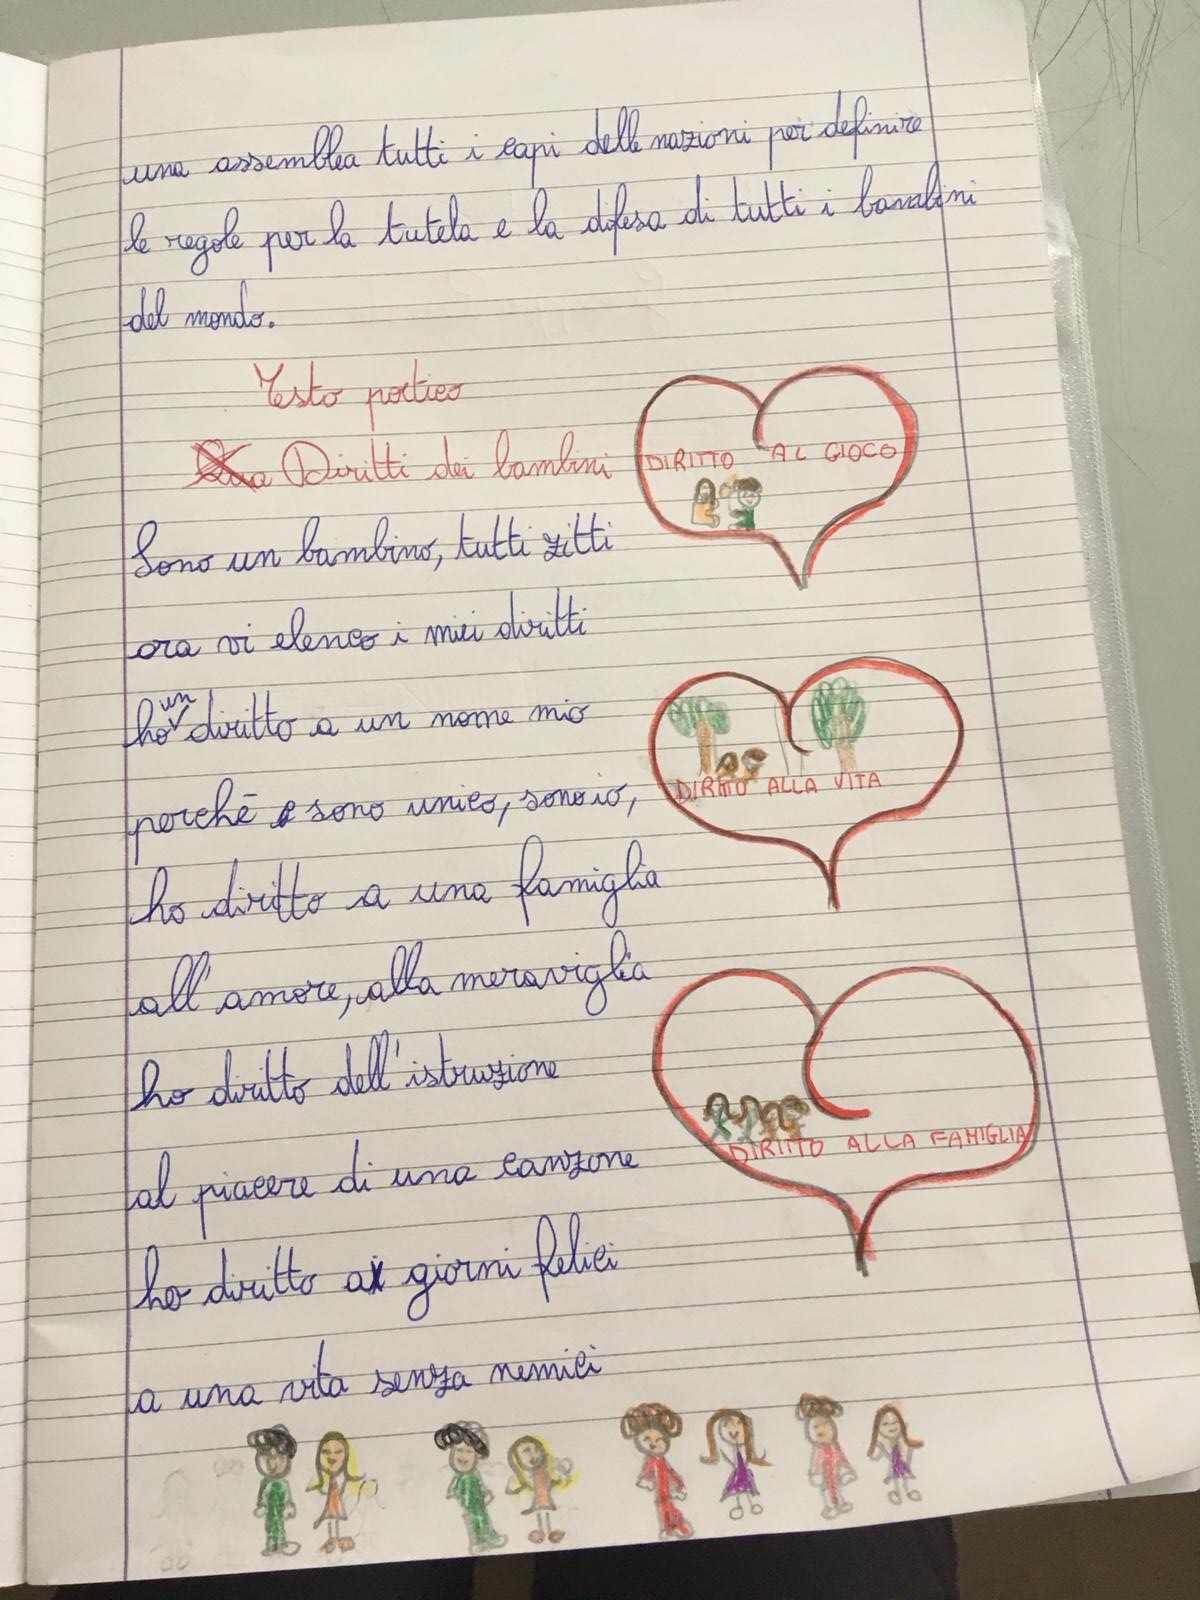 una assemblea tutti i capi delle nazioni per definire
le regole per la tutela e la difesa di tutti i bambini
del mondo.
Testo poetico
Diritti dei bambini
DIRITTO AL GIOCO
Sono un bambino, tutti zitti
ora vi elenco i miei diritti
ho un diritto a un nome mio
perché sono unico, sono io,
DIRITTO ALLA VITA
ho diritto a una famiglia
all'amore, alla meraviglia
ho diritto dell'istruzione
al piacere di una canzone
DIRITTO ALLA FAMIGLIA
ho diritto a giorni felici
a una vita senza nemici